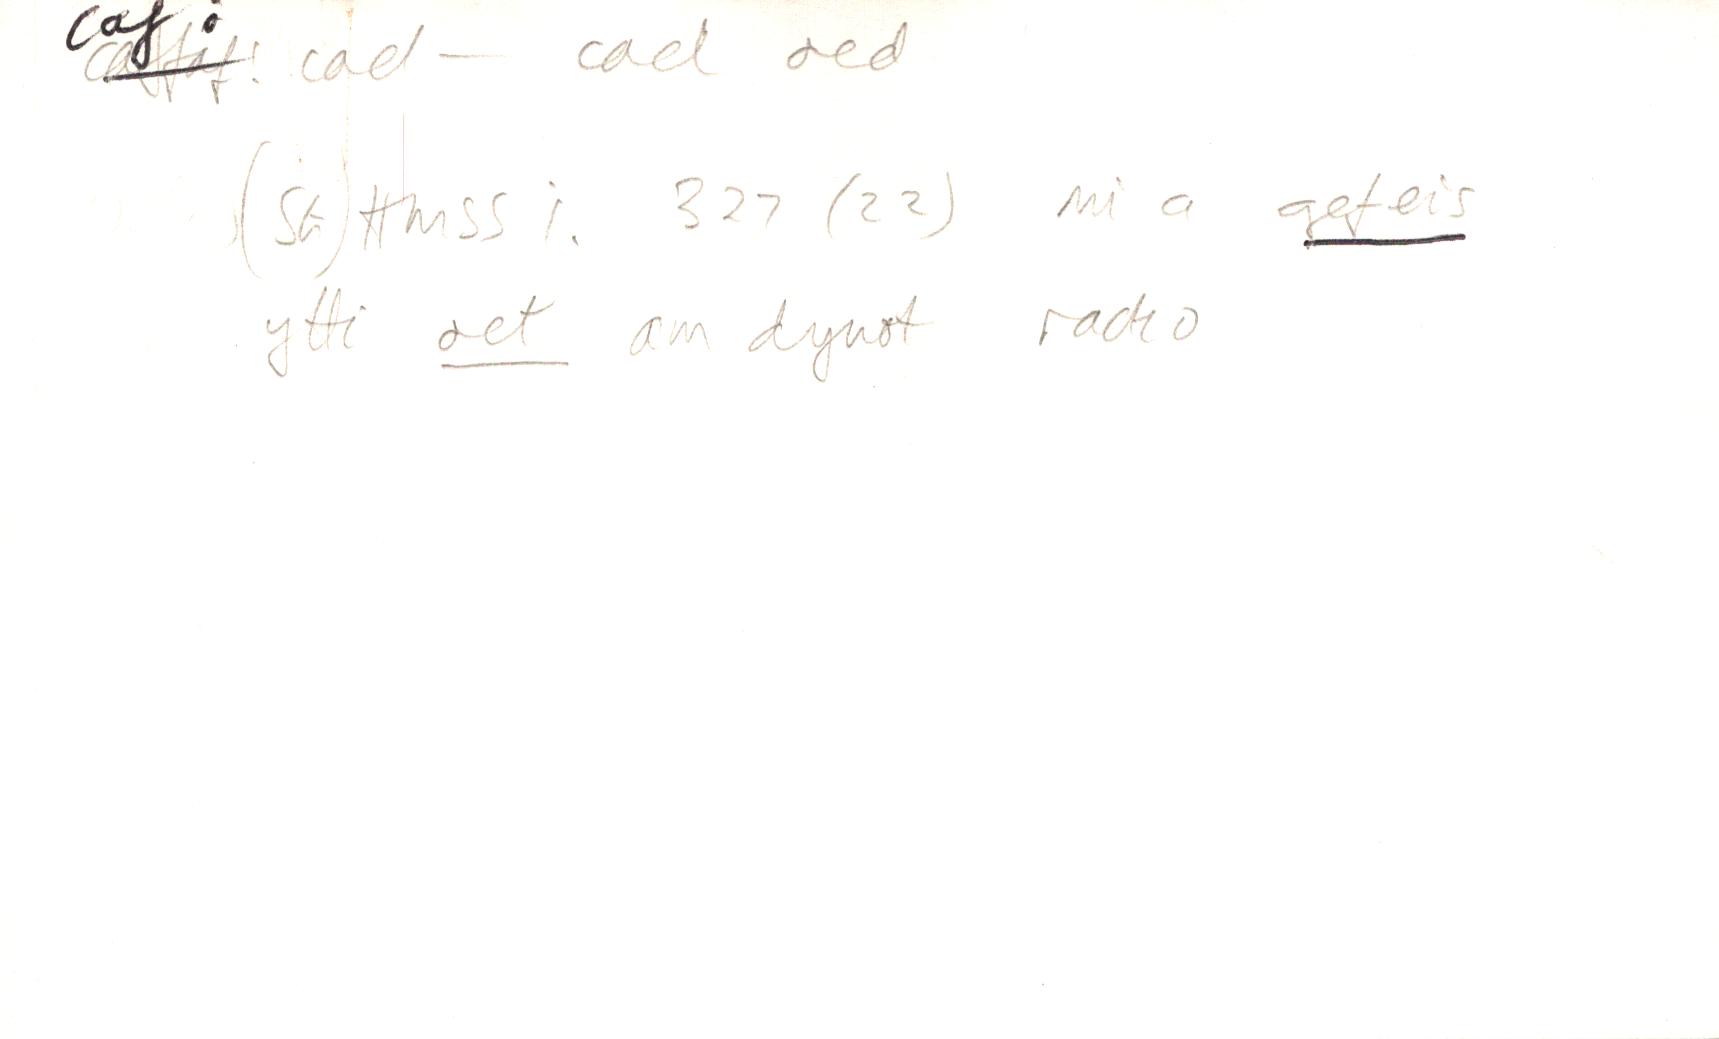 caf:
caffaf: cad — cael oed
(SG) Hmss i. 327 (22) mi a gefeis
ytti oet am dynot racko